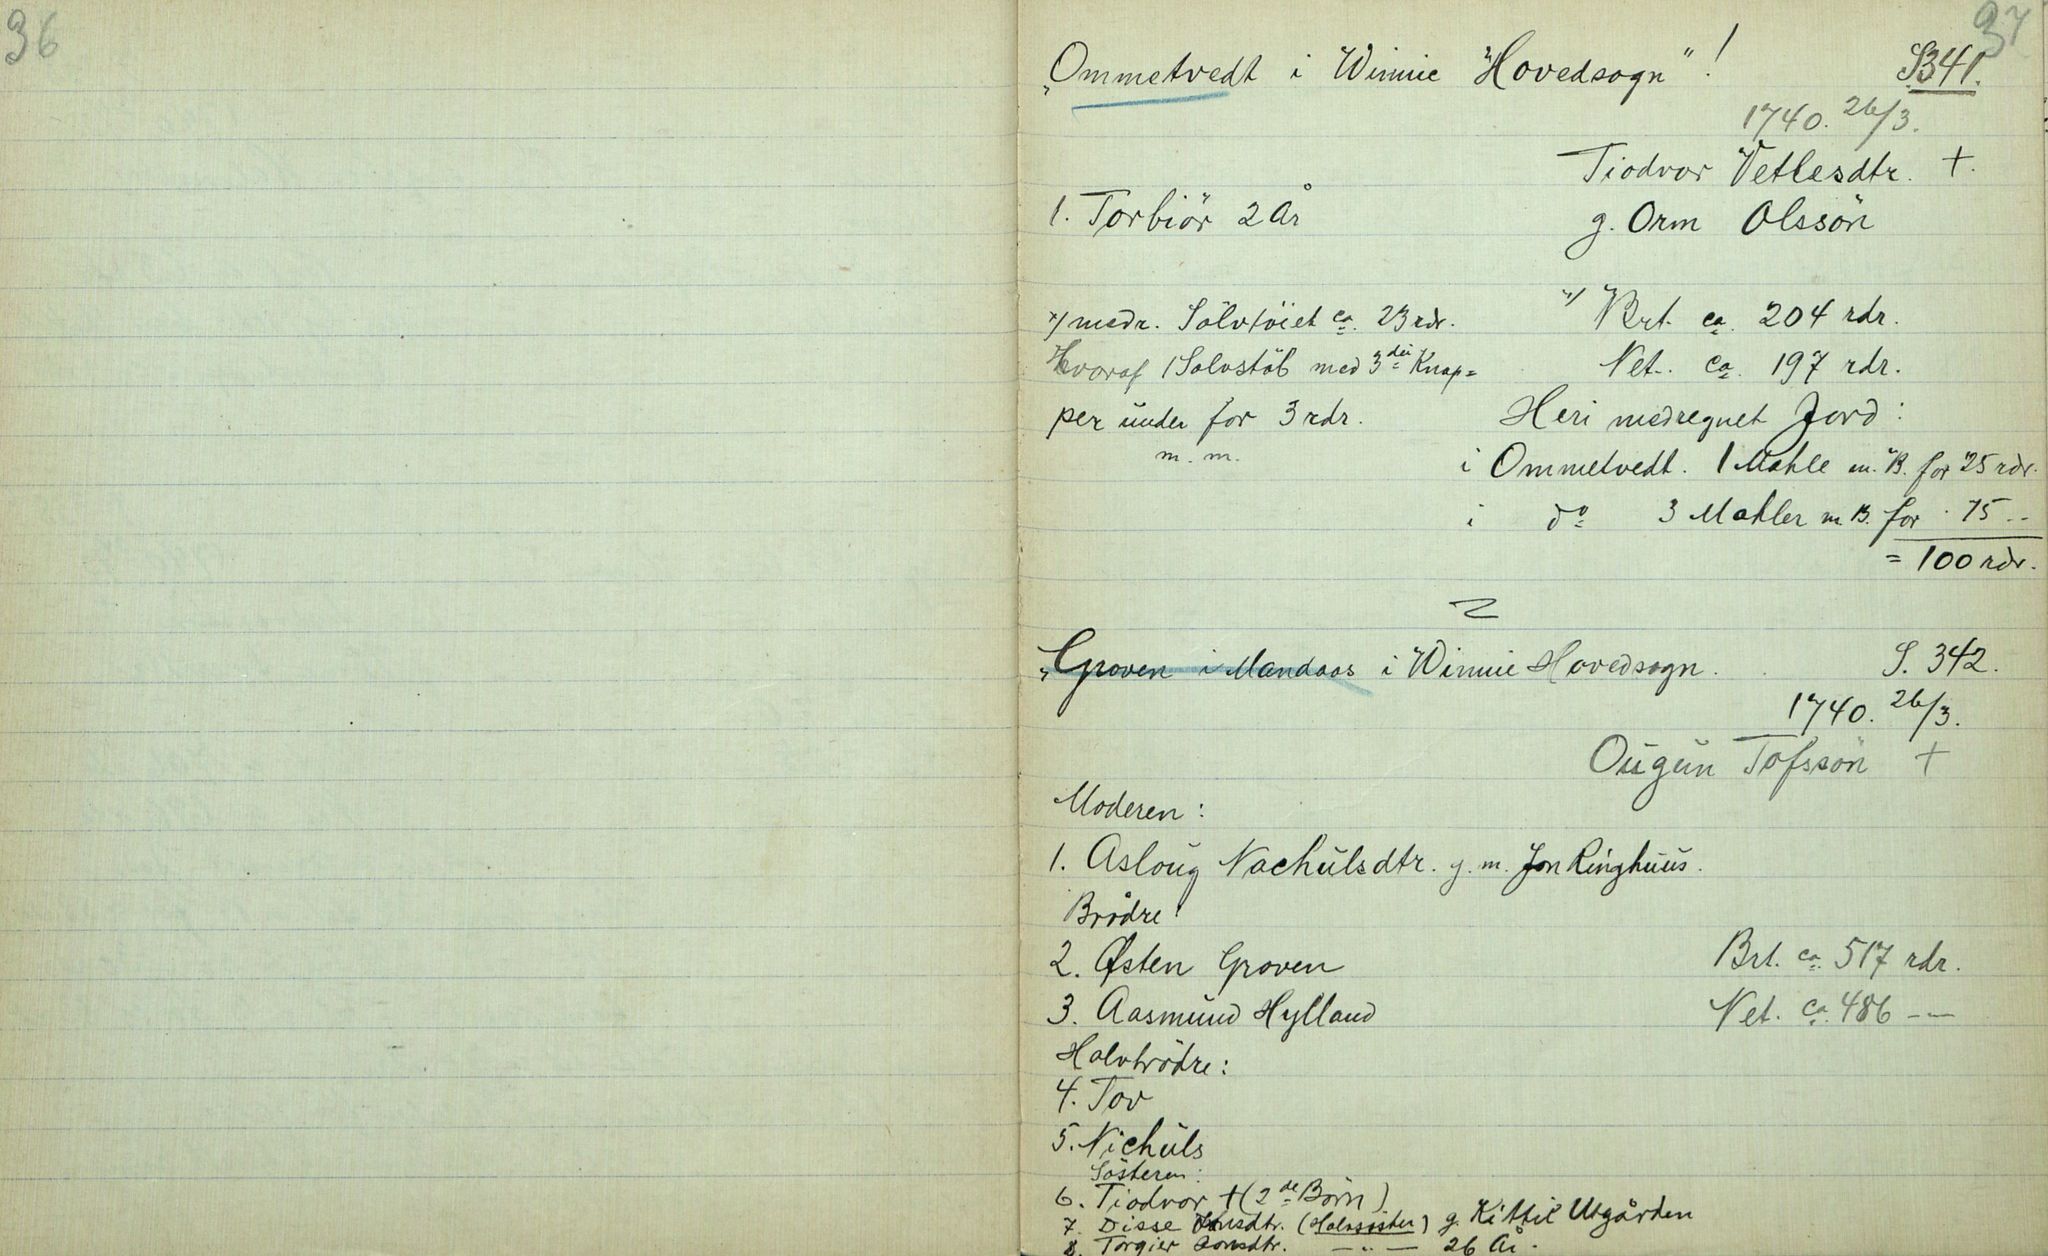 36
37
"Ommetvedt i Winnie "Hovedsogn"! S341.
1740. 26/3.
Tiodvor Vetlesdtr. +.
1. Torbiör 2 År
g. Orm Olssön
x/ Brt. ca. 204 rdr.
x/ medr. Sölvtöiet ca. 23 rdr.
Net. ca. 197 rdr.
Hvoraf 1 Sølvstöb med 3de Knap=
per under for 3 rdr.
m. m.
Heri medregnet Jord:
i Ommetvedt. 1 Mahle m. B. for 25 rdr.
i do 3 Mahler m B. for 75 --
= 100 rdr.
"Groven i Mandaos i Winnie Hovedsogn. S. 342.
1740. 26/3.
Ougun Tofssön +
Moderen:
1. Asloug Nachulsdtr. g. m. Jon Ringhuus.
Brödre:
2. Østen Groven
Brt. ca. 517 rdr.
3. Aasmund Hylland
Net. ca. 486 --
Halvbrödre:
4. Tov
5. Nichuls
Sösteren:
6. Tiodvor + (2de Börn)
7. Disse Jonsdtr. (Halvsöster) g. Kittil Utgården
8. Torgier Jonsdtr. —"— 26 År.